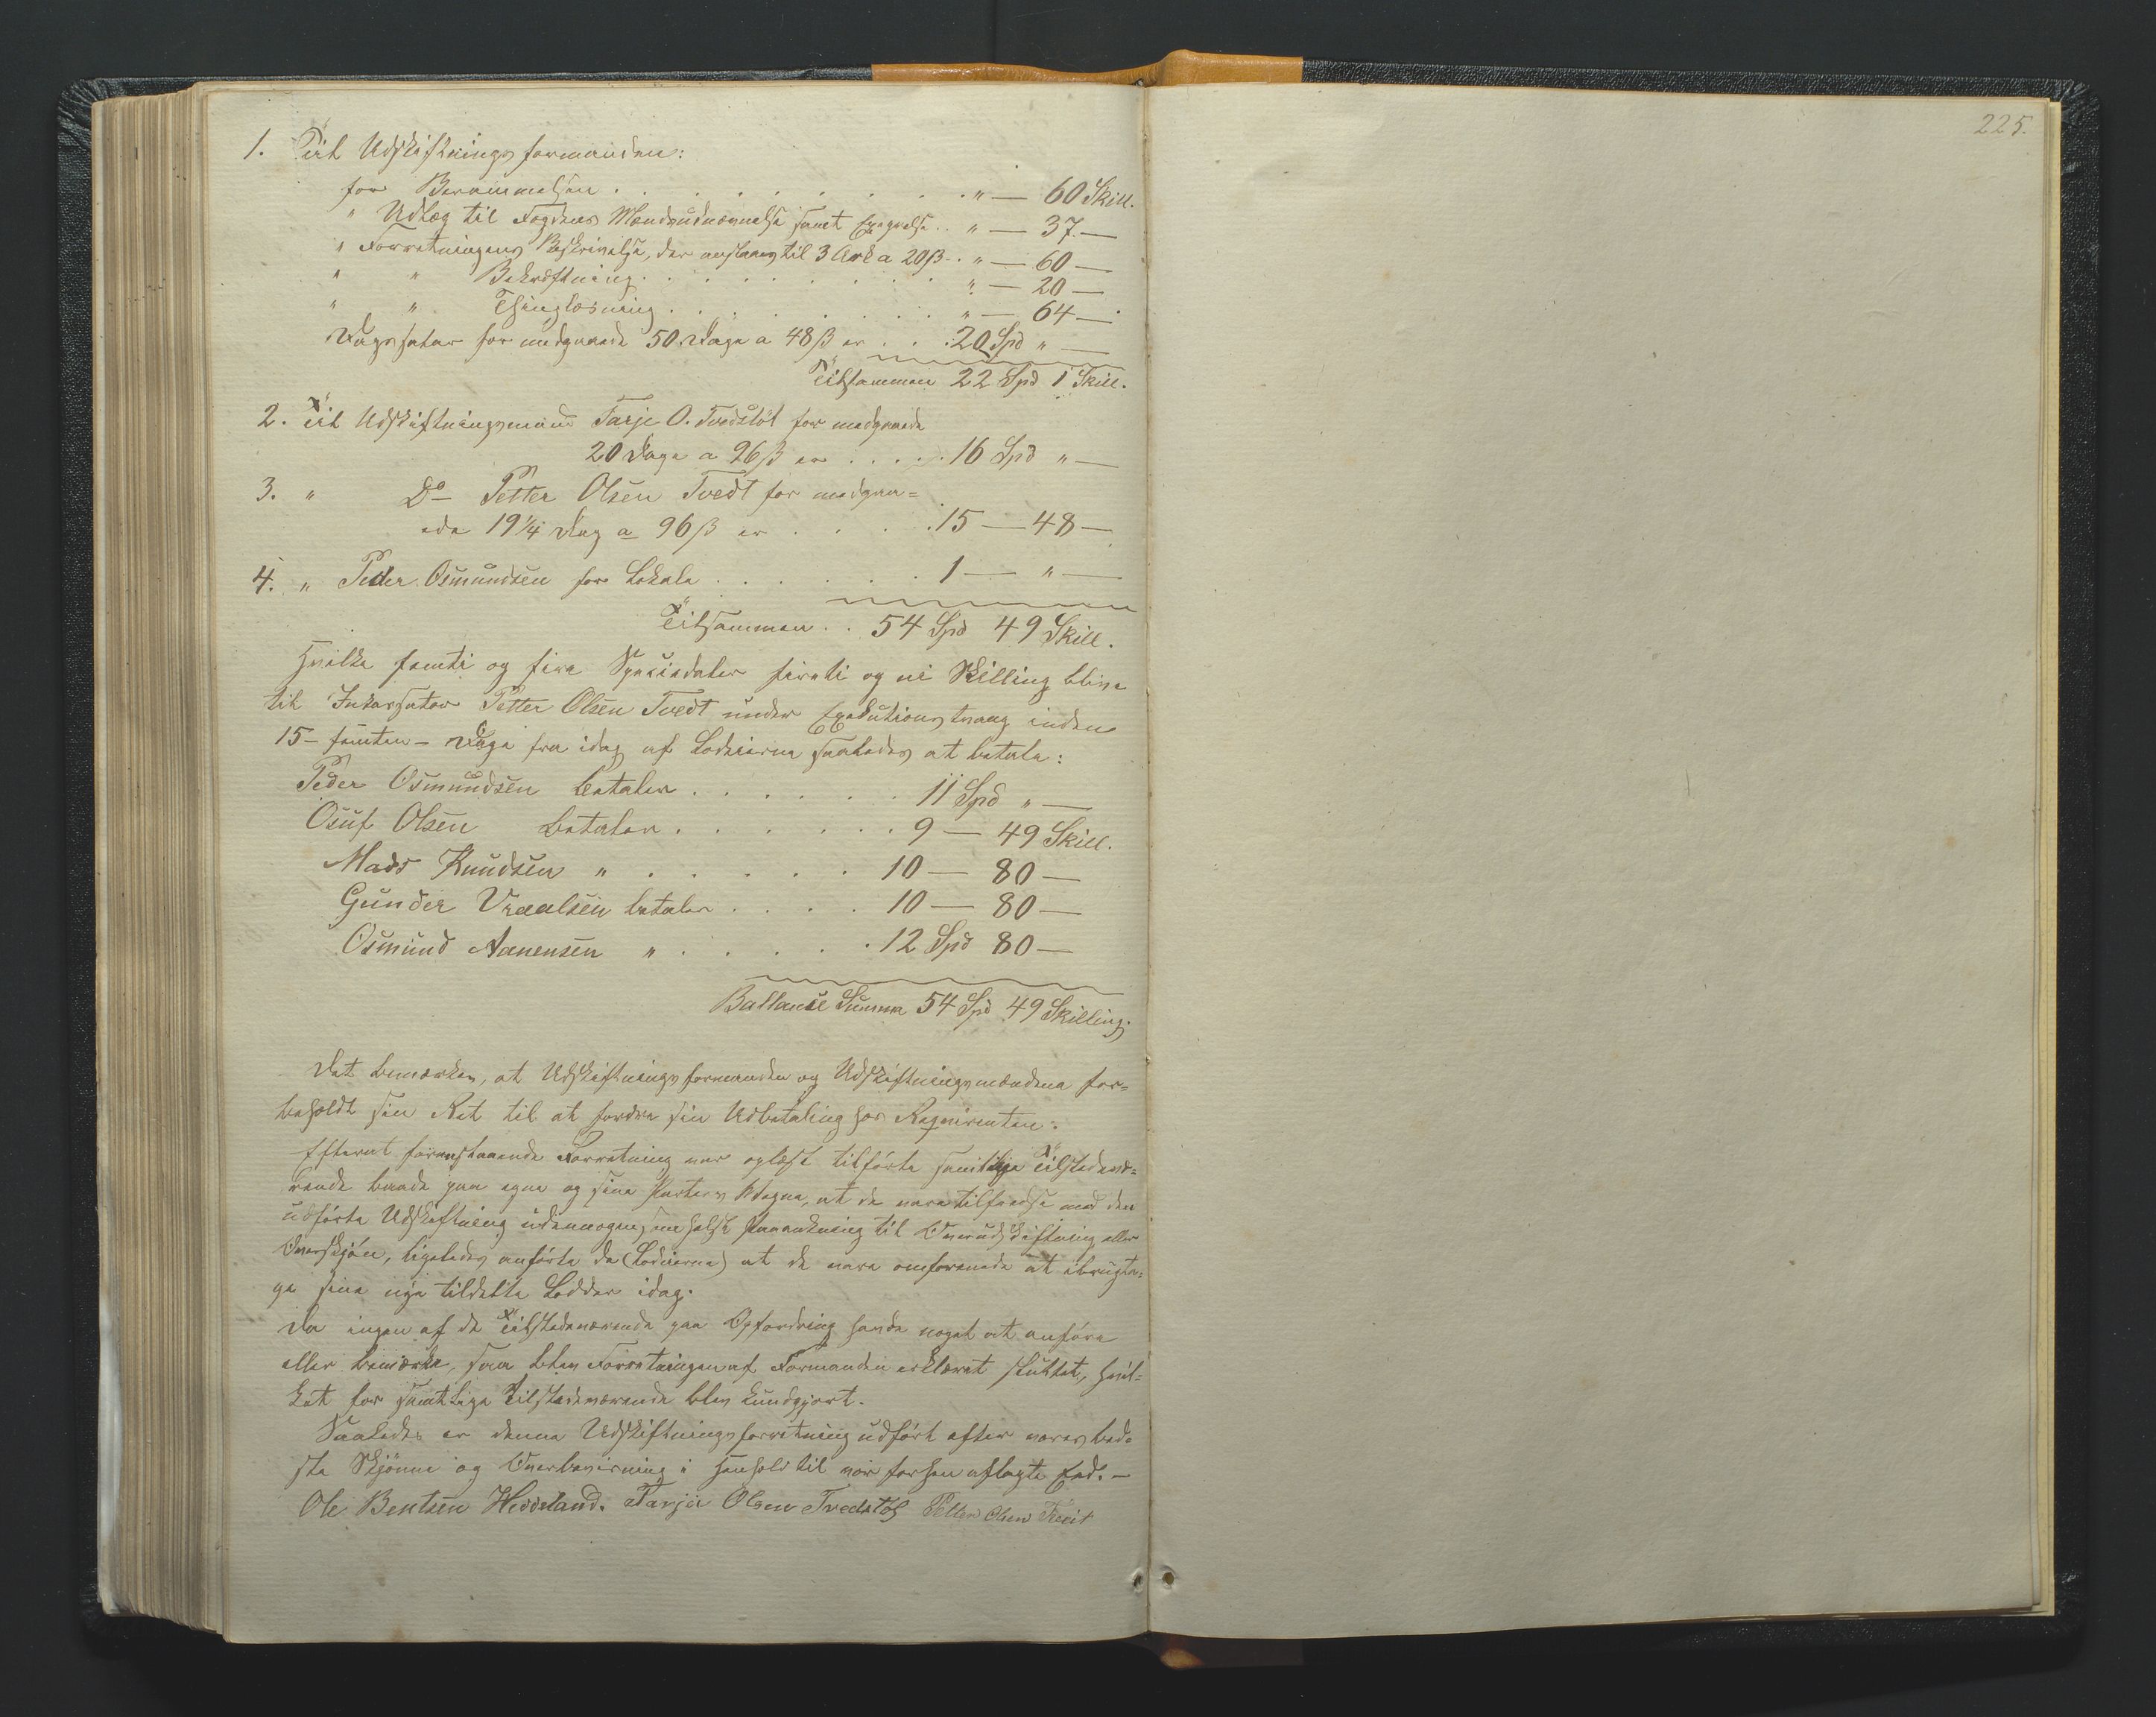 225.
1. Til Udskiftningsformanden:
for Berammelsen . . . . . . . . . . " — 60 Skill.
" Udlæg til Fogdens Mændsudnævnelse samt Exgvelse . . " — 37. —
" Forretningens Beskrivelse, der anslaaes til 3 Ark a 20 ß . . " — 60 —
" " Bekræftning . . . . . . . . " — 20 —
" " Thinglæsning . . . . . . . . " — 64 —
Dagsatser for medgaaede 50 Dage a 48 ß er . . . 20 Spd " —
Tilsammen 22 Spd 1 Skill.
2. Til Udskiftningsmand Tarje O. Tvedstøl for medgaaede
20 Dage a 96 ß er . . . . . 16 Spd " —
3. " Do Petter Olsen Tvedt for medgaa=
ede 19 1/4 Dag a 96 ß er . . . . 15 — 48 —
4. " Peder Osmundsen for Lokale . . . . . . 1 — " —
Tilsammen . . 54 Spd 49 Skill.
Hvilke femti og fire Speciedaler fireti og ni Skilling blive
til Inkassator Petter Olsen Tvedt under Exekutionstvang inden
15 - femten - Dage fra idag af Lodeierne saaledes at betale:
Peder Osmundsen betaler . . . . . . 11 Spd " —
Osuf Olsen betaler . . . . . . 9 — 49 Skill.
Mads Knudsen " . . . . . . 10 — 80 —
Gunder Vraalsen betaler . . . . 10 — 80 —
Osmund Aanensen " . . . . . . 12 Spd 80 —
Ballance Summa 54 Spd 49 Skilling.
Det bemærkes, at Udskiftningsformanden og Udskiftningsmændene for=
beholdt sin Ret til at fordre sin Udbetaling hos Reqvirenten.
Efterat foranstaaende Forretning var oplæst tilførte samtlige Tilstedevæ=
rende baade paa egne og sine Parters Vegne, at de vare tilfredse med den
udførte Udskiftning uden nogensomhelst Paaankning til Overudskiftning eller
Overskjøn, ligeledes anførte de (Lodeierne) at de vare omforenede at ibrugta=
ge sine nye tildelte Lodder idag.
Da ingen af de Tilstedeværende paa Opfordring havde noget at anføre
eller bemærke, saa blev Forretningen af Formanden erklæret sluttet, hvil=
ket for samtlige Tilstedeværende blev kundgjort.
Saaledes er denne Udskiftningsforretning udført efter vores bed=
ste Skjønne og Overbevisning i Henhold til vor forhen aflagte Eed. —
Ole Bentsen Heddeland. Tarjei Olsen Tvedstøl Petter Olsen Tveit